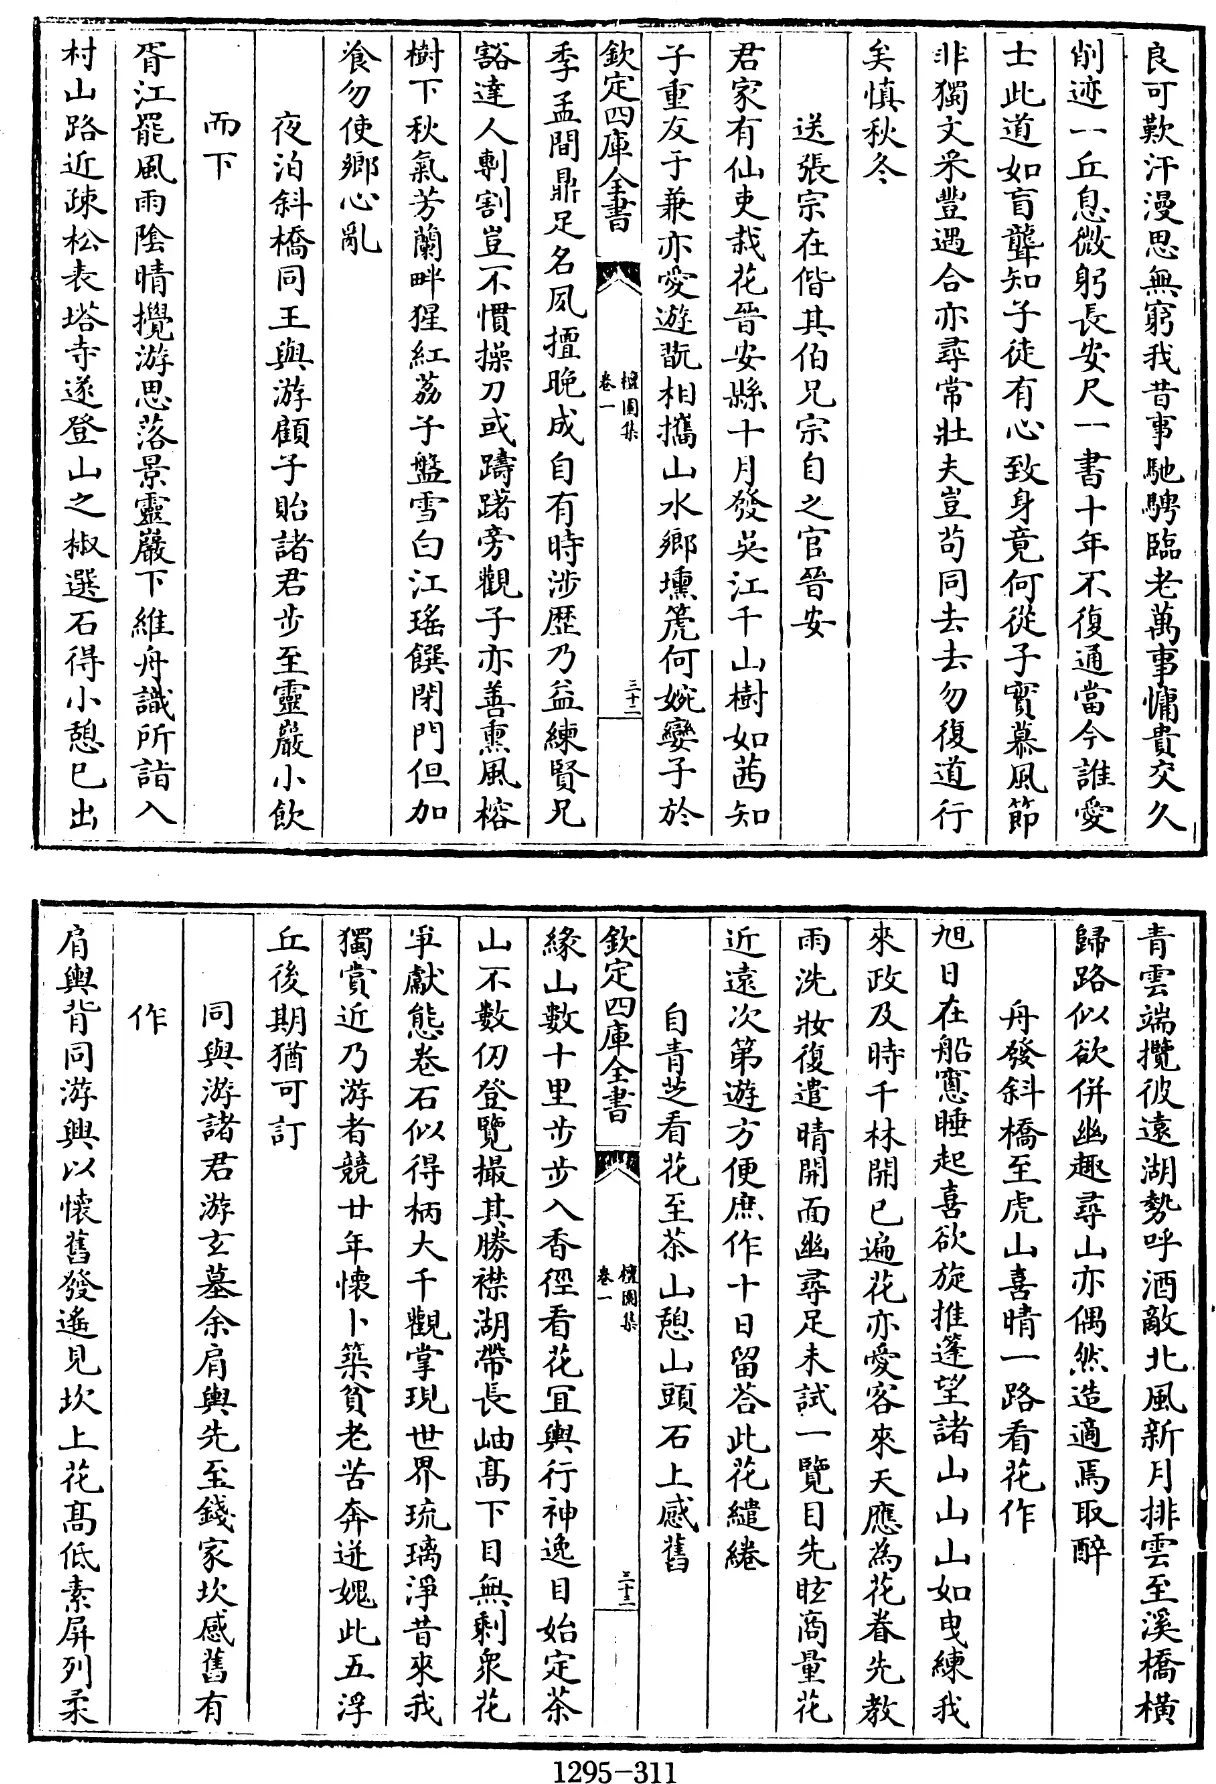 良可歎汗漫思無窮我昔事馳騁臨老萬事慵貴交久
削迹一丘息微躬長安尺一書十年不復通當今誰愛
士此道如盲聾知子徒有心致身竟何從子實慕風節
非獨文采豐遇合亦尋常壯夫豈苟同去去勿復道行
矣慎秋冬
送張宗在偕其伯兄宗自之官晉安
君家有仙吏栽花晉安縣十月發吳江千山樹如茜知
子重友于兼亦愛遊翫相攜山水鄉壎箎何婉孌子於
欽定四庫全書
檀園集
卷一
三十二
季孟間鼎足名夙擅晚成自有時涉歷乃益練賢兄
豁達人剸割豈不慣操刀或躊躇旁觀子亦善熏風榕
樹下秋氣芳蘭畔猩紅荔子盤雪白江瑤饌閉門但加
飡勿使鄉心亂
夜泊斜橋同王與游顧子貽諸君步至靈巖小飲
而下
胥江罷風雨陰晴攪游思落景靈巖下維舟識所詣入
村山路近疎松表塔寺遂登山之椒選石得小憩已出
青雲端攬彼遠湖勢呼酒敵北風新月排雲至溪橋橫
歸路似欲併幽趣尋山亦偶然造適焉取醉
舟發斜橋至虎山喜晴一路看花作
旭日在船窻睡起喜欲旋推篷望諸山山山如曳練我
來政及時千林開已遍花亦愛客來天應為花眷先教
雨洗妝復遣晴開面幽尋足未試一覽目先眩商量花
近遠次第遊方便庶作十日留荅此花繾綣
自青芝看花至茶山憩山頭石上感舊
欽定四庫全書
檀園集
卷一
三十二
緣山數十里步步入香徑看花宜輿行神逸目始定茶
山不數仞登覽撮其勝襟湖帶長岫髙下目無剩衆花
爭獻態卷石似得柄大千觀掌現世界琉璃淨昔來我
獨賞近乃游者競廿年懷卜築貧老苦奔迸媿此五浮
丘後期猶可訂
同與游諸君游玄墓余肩輿先至錢家坎感舊有
作
肩輿背同游興以懷舊發遙見坎上花髙低素屏列柔
1295-311